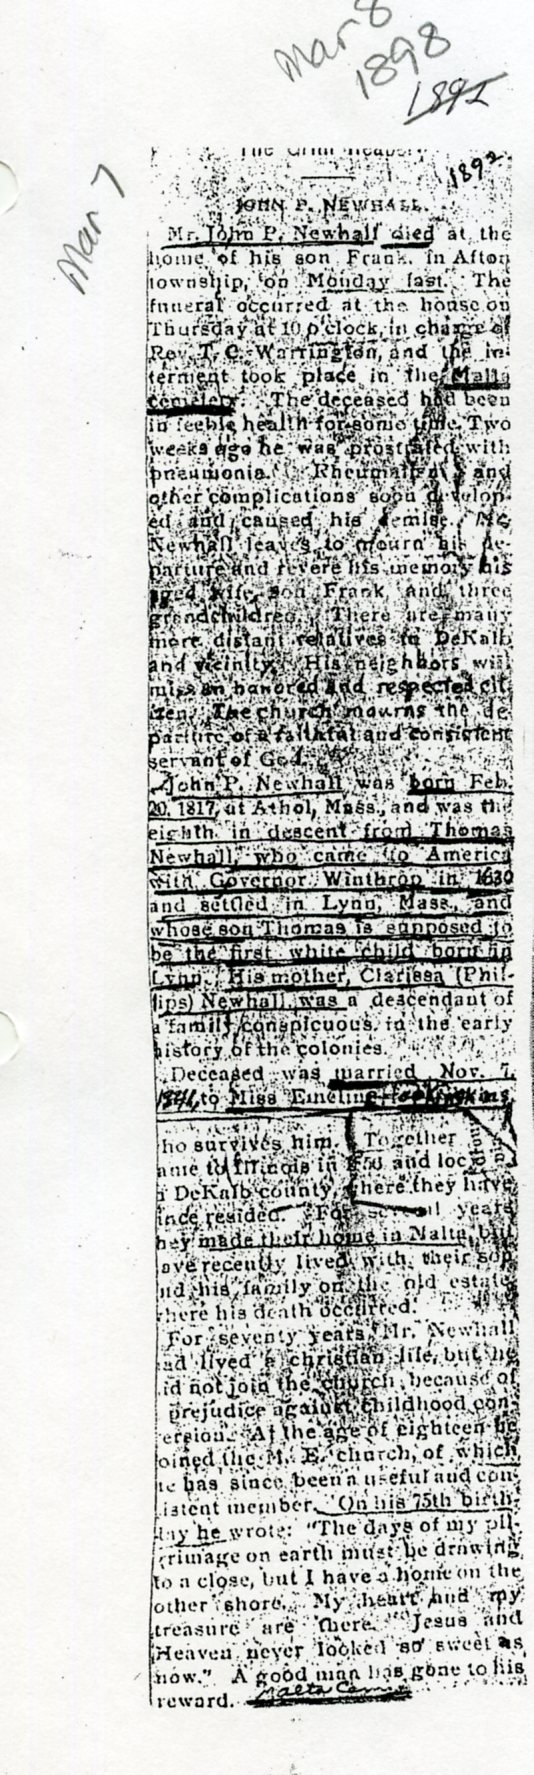 Mar 8
1898
1892
Mar 7
The Grim Reaper.
1892.
JOHN P. NEWHALL.
Mr. John P. Newhall died at the
home of his son Frank, in Afton
township, on Monday last. The
funeral occurred at the house on
Thursday at 10 o'clock, in charge of
Rev. T. C. Warrington, and the in-
terment took place in the Malta
cemetery. The deceased had been
in feeble health for some time. Two
weeks ago he was prostrated with
pneumonia. Rheumatism and
other complications soon develop-
ed and caused his demise. Mr.
Newhall leaves to mourn his de-
parture and revere his memory his
aged wife, son Frank, and three
grandchildren. There are many
more distant relatives in DeKalb
and vicinity. His neighbors will
miss an honored and respected cit-
izen. The church mourns the de-
parture of a faithful and consistent
servant of God.
John P. Newhall was born Feb.
20, 1817, at Athol, Mass., and was the
eighth in descent from Thomas
Newhall, who came to America
with Governor Winthrop in 1630
and settled in Lynn, Mass., and
whose son Thomas is supposed to
be the first white child born in
Lynn. His mother, Clarissa (Phil-
lips) Newhall, was a descendant of
a family conspicuous in the early
history of the colonies.
Deceased was married Nov. 7,
1841, to Miss Emeline
ho survives him. Together
ame to Illinois in and loc
n DeKalb county, here they have
ince resided. For years
hey made their home in Malta, but
ave recently lived with their son
nd his family on the old estate
here his death occurred.
For seventy years Mr. Newhall
ad lived a christian life, but he
id not join the church because of
prejudice against childhood con-
ersion. At the age of eighteen he
oined the M. E. church, of which
he has since been a useful and con-
istent member. On his 75th birth-
day he wrote: "The days of my pil-
grimage on earth must be drawing
to a close, but I have a home on the
other shore. My heart and my
treasure are there. Jesus and
Heaven never looked so sweet as
now." A good man has gone to his
reward. Malta Cem